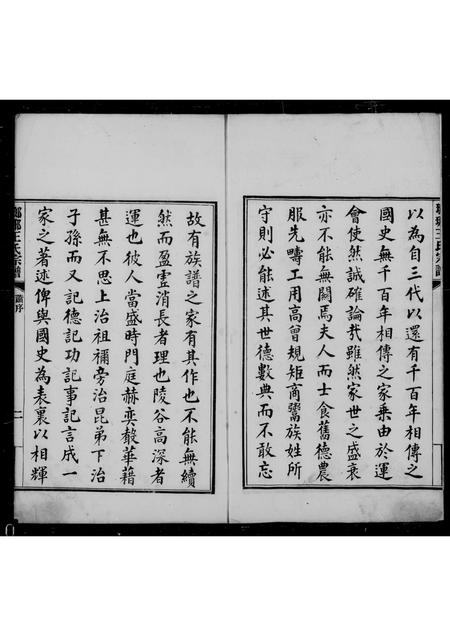 以為自三代以還有千百年相傳之
國史無千百年相傳之家乘由於運
會使然誠確論哉雖然家世之盛衰
亦不能無關焉夫人而士食舊德農
服先疇工用高曾規矩商鬻族姓所
守則必能述其世德數典而不敢忘
故有族譜之家有其作也不能無續
然而盈虛消長者理也陵谷高深者
運也彼人當盛時門庭赫奕轂華藉
甚無不思上治祖禰旁治昆弟下治
子孫而又記德記功記事記言成一
家之著述俾與國史為表裏以相輝
瑯琊王氏宗譜
序